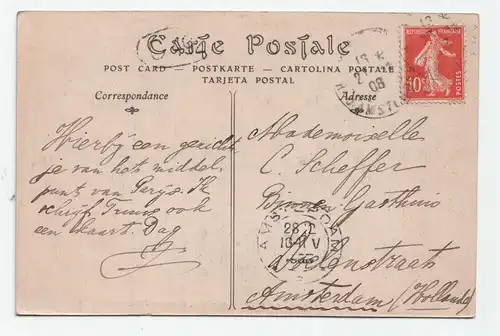 Carte Postale
POST CARD — POSTKARTE — CARTOLINA POSTALE
TARJETA POSTAL
Correspondance
Adresse
Hierbij een gezicht
je van het middel
punt van Parijs. Ik
schrijf Truus ook
een kaart. Dag
Mademoiselle
C. Scheffer
Binnen Gasthuis
Amsterdam (Hollande)
REPUBLIQUE FRANÇAISE
10c
POSTES
08
AMSTERDAM
28 2